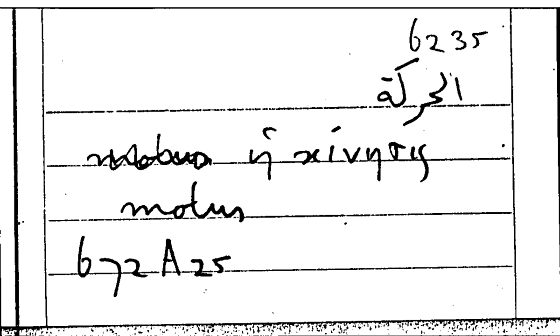 6235
الحركة
ἡ κίνησις
motus
672 A 25